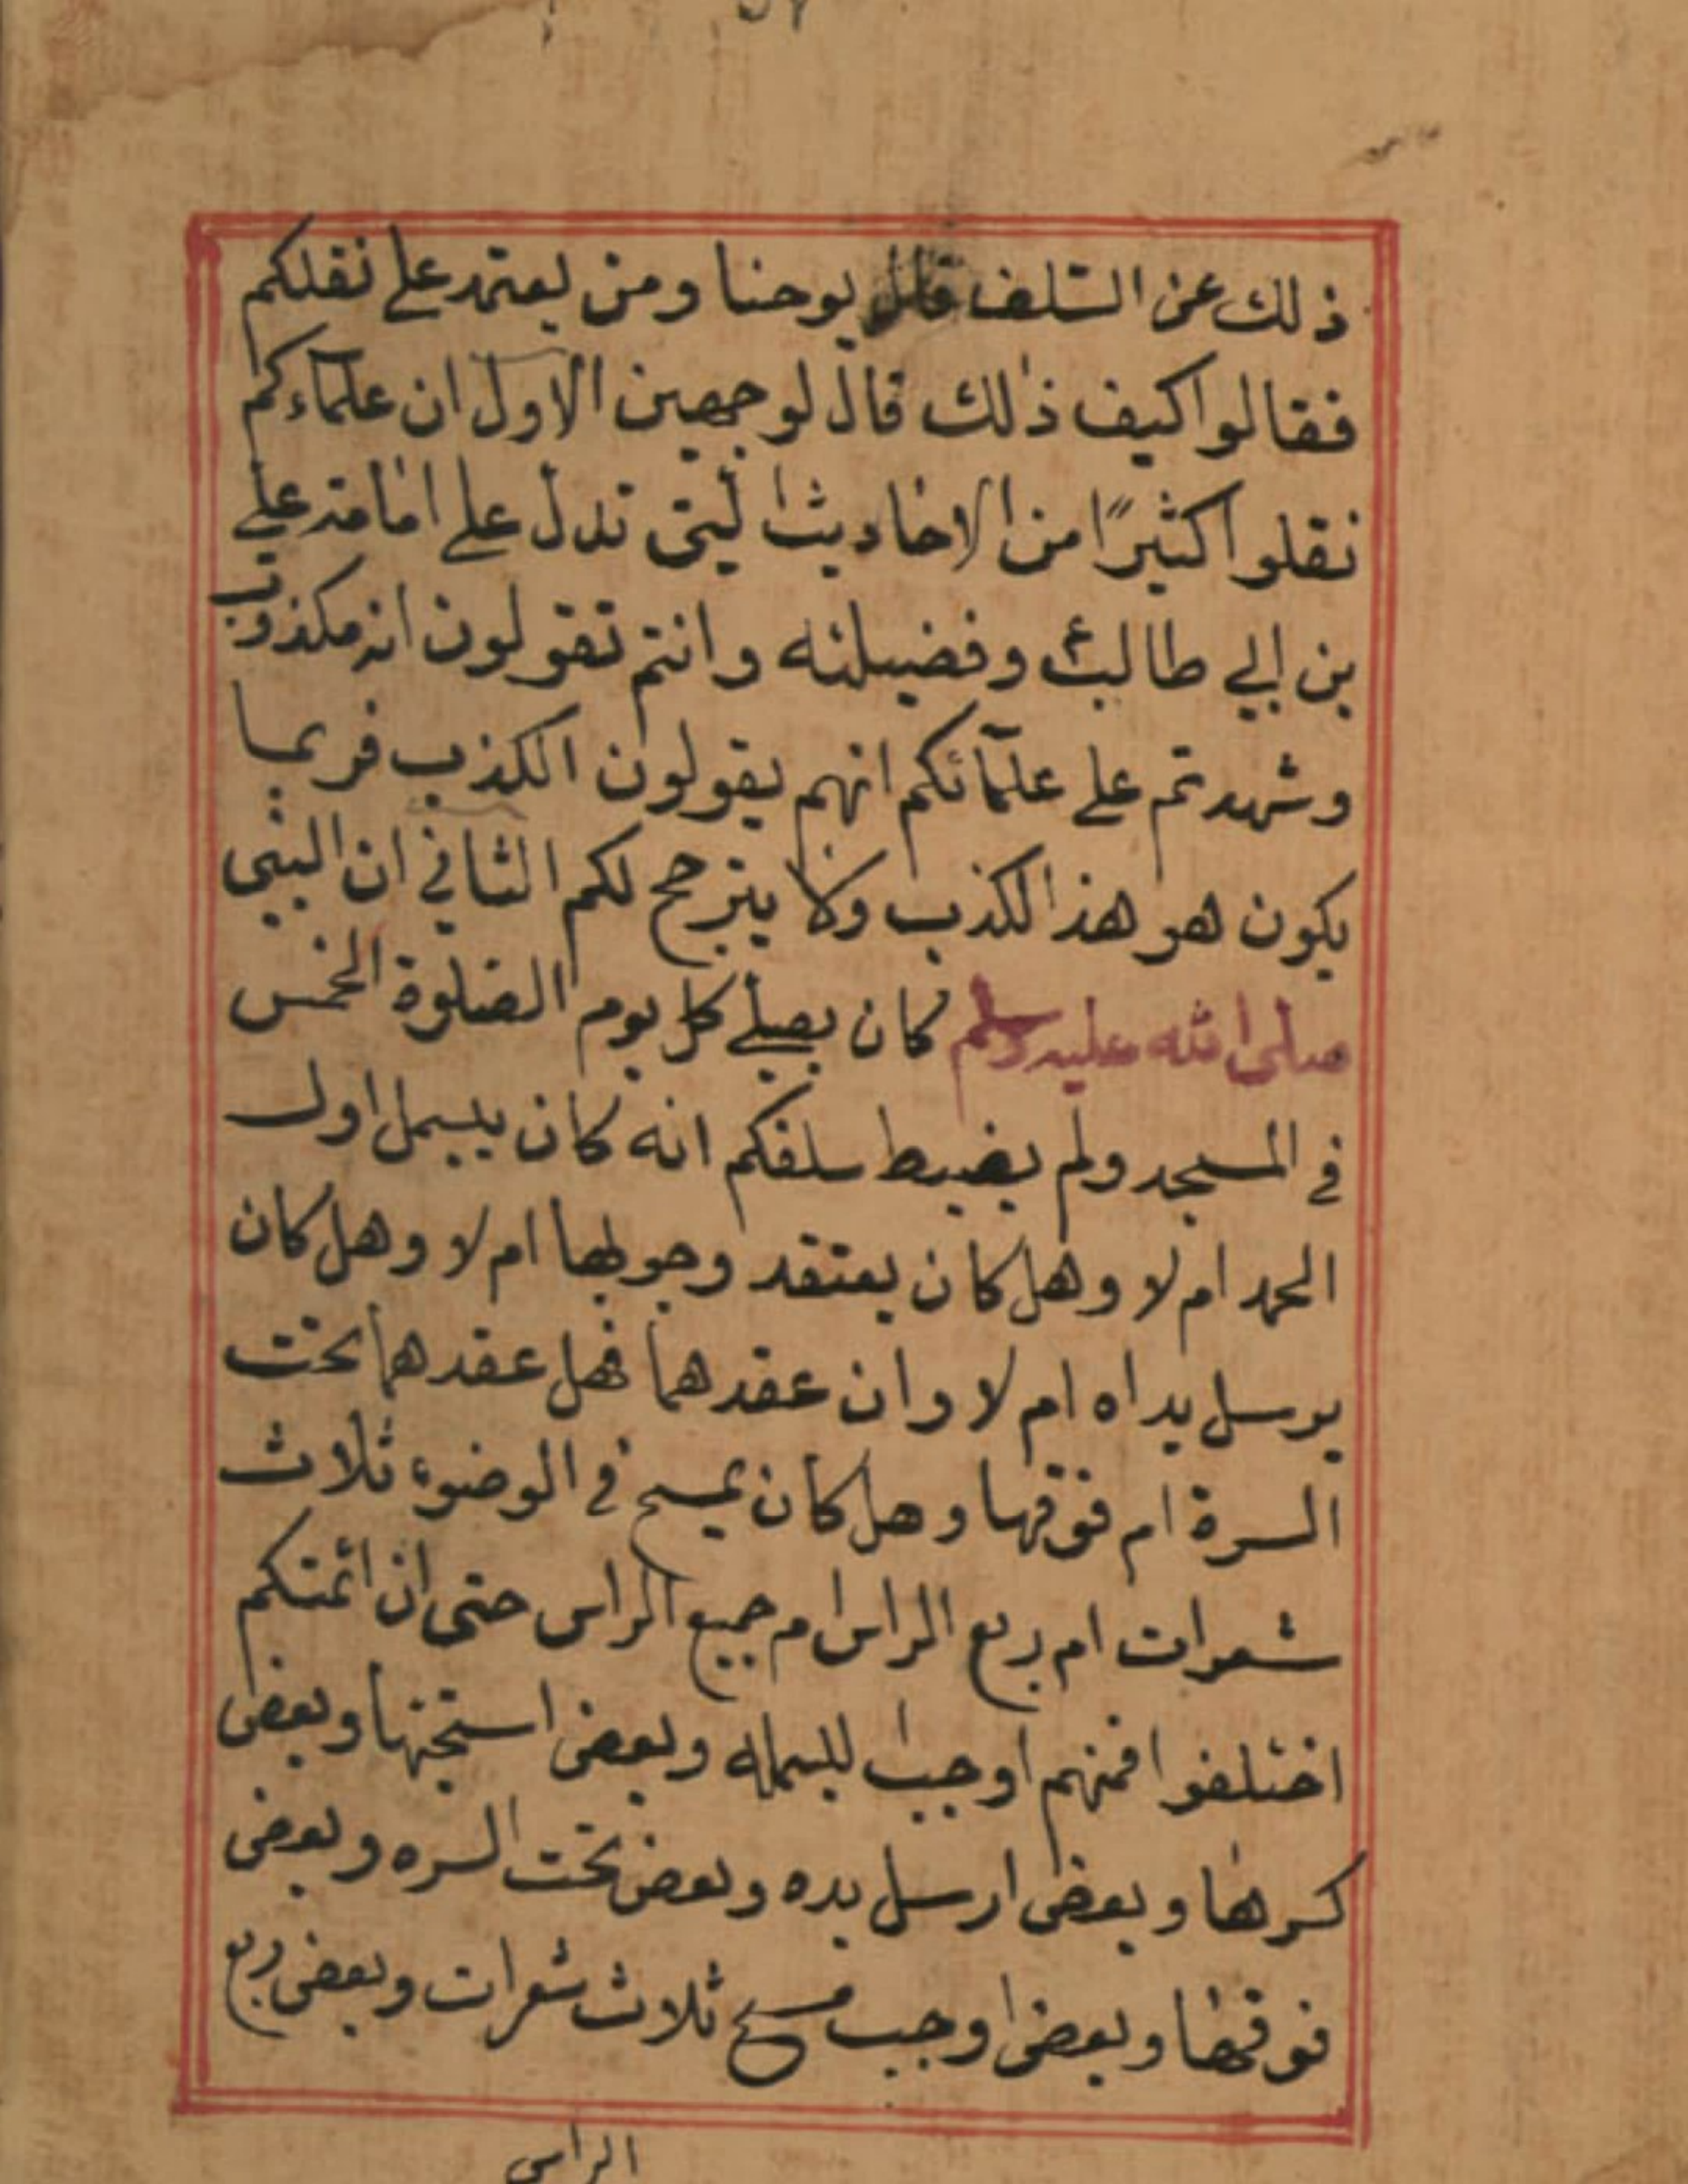 ذلك عن السلف قال يوحنا ومن يعتمد على نقلكم
فقالوا كيف ذلك قال لوجهين الاول ان علماءكم
نقلوا كثيرًا من الاحاديث التي تدل على امامة علي
بن ابي طالب وفضيلته وانتم تقولون انه مكذوب
وشهدتم على علمائكم انهم يقولون الكذب فربما
يكون هو هذا الكذب ولا يترجح لكم الثاني ان النبي
صلى الله عليه وسلم كان يصلي كل يوم الصلوة الخمس
في المسجد ولم يضبط سلفكم انه كان يبسمل اول
الحمد ام لا وهل كان يعتقد وجوبها ام لا وهل كان
يرسل يداه ام لا وان عقدهما فهل عقدهما تحت
السرة ام فوقها وهل كان يمسح في الوضوء ثلاث
شعرات ام ربع الراس ام جميع الراس حتى ان ائمتكم
اختلفوا فمنهم اوجب البسمله وبعض استحبها وبعض
كرهها وبعض ارسل يده وبعض تحت السره وبعض
فوقها وبعض اوجب مسح ثلاث شعرات وبعض ربع
الراس